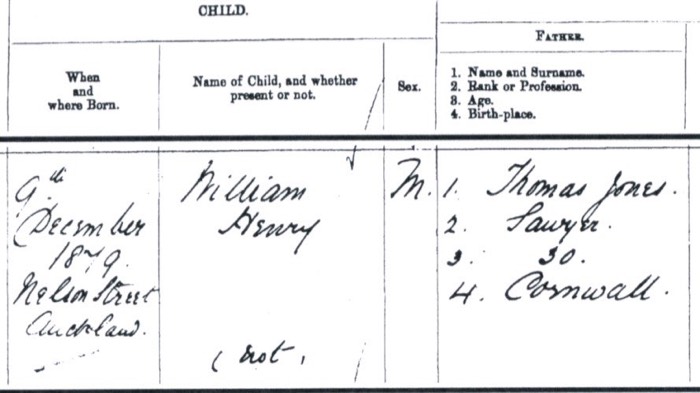 CHILD.
FATHER.
When
and
where Born.
Name of Child, and whether
present or not.
Sex.
1. Name and Surname.
2. Rank or Profession.
3. Age.
4. Birth-place.
9th
December
1879.
Nelson Street
Auckland.
William
Henry
(not,
M.
1. Thomas Jones.
2. Sawyer.
3. 30.
4. Cornwall.